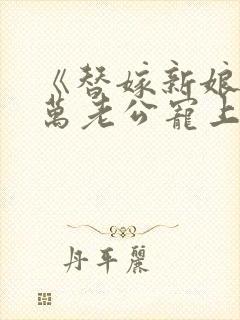 《替嫁新娘
萬老公寵上
丹平麗